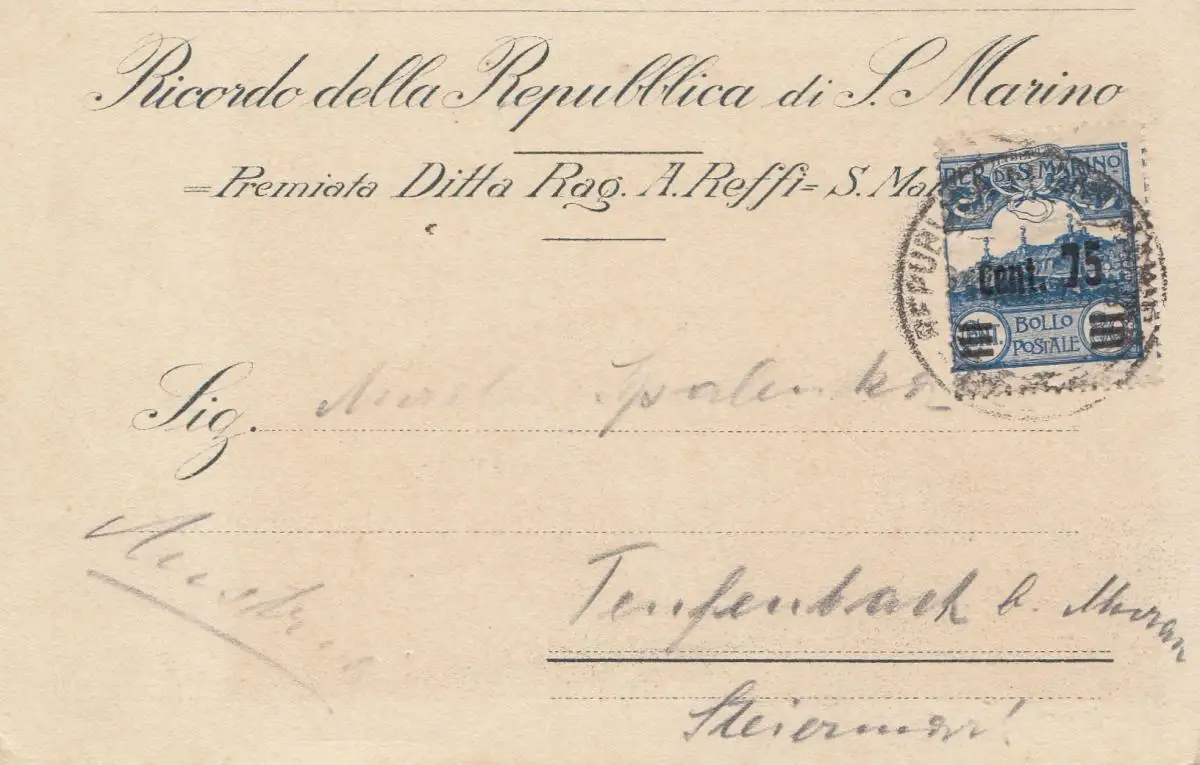 Ricordo della Repubblica di S. Marino
=Premiata Ditta Rag. A. Reffi= S. Ma
REP. DI S. MARINO
Cent. 75
BOLLO
POSTALE
Sig.
Austria
Teufenbach b. Murau
Steiermark